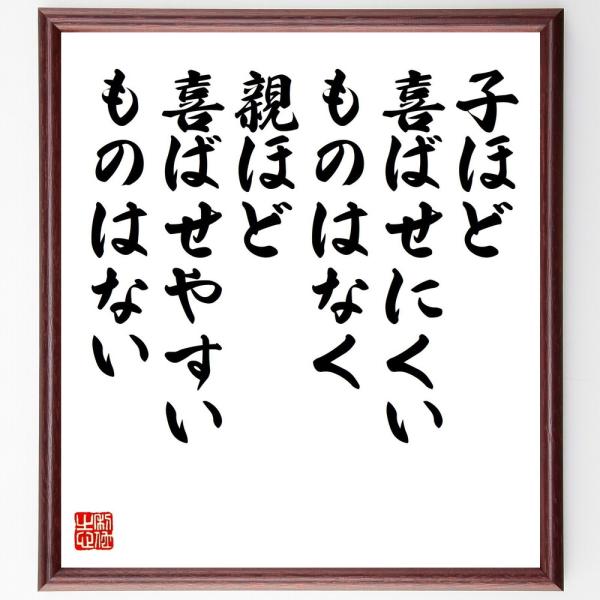 子ほど
喜ばせにくい
ものはなく
親ほど
喜ばせやすい
ものはない